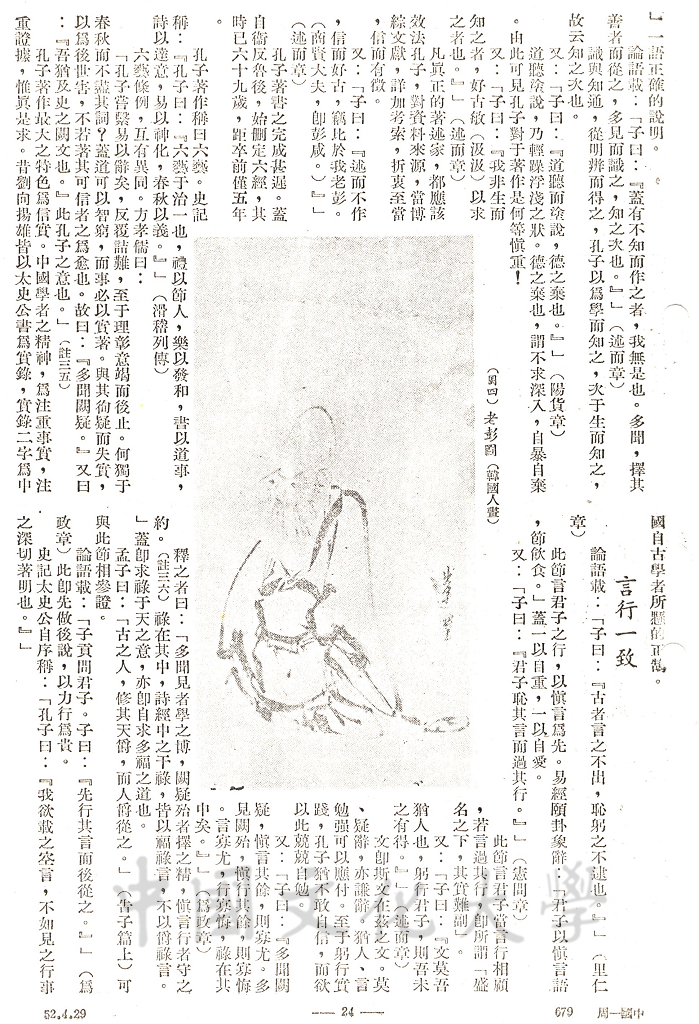 』一語正確的說明。
論語載:「子曰:『蓋有不知而作之者,我無是也。多聞,擇其
善者而從之,多見而識之,知之次也。』」(述而章)
識與知通,從明辨而得之,孔子以爲學而知之,次于生而知之,
故云知之次也。
又:「子曰:『道聽而塗說,德之棄也。』」(陽貨章)
道聽塗說,乃輕躁浮淺之狀。德之棄也,謂不求深入,自暴自棄
。由此可見孔子對于著作是何等愼重!
又:「子曰:『我非生而
知之者,好古敏(汲汲)以求
之者也。』」(述而章)
凡眞正的著述家,都應該
效法孔子,對資料來源,當博
綜文獻,詳加考索,折衷至當
,信而有徵。
又:「子曰:『述而不作
,信而好古,竊比於我老彭。
(商賢大夫,卽彭咸。)』」
(述而章)
孔子著書之完成甚遲。蓋
自衞反魯後,始刪定六經,其
時已六十九歲,距卒前僅五年
。
孔子著作稱曰六藝。史記
稱:『孔子曰:『六藝于治一也,禮以節人,樂以發和,書以道事,
詩以達意,易以神化,春秋以義。』」(滑稽列傳)
六藝條例,互有異同。方孝儒曰:
「孔子嘗繫易以辭矣,反覆詰難,至于理彰意竭而後止。何獨于
春秋而不盡其詞?蓋道可以智窮,而事必以實著。與其徇疑而失實,
以爲後世害,不若著其可信者之爲愈也。故曰:『多聞闕疑。』又曰
:『吾猶及史之闕文也。』此孔子之意也。」(註三五)
孔子著作最大之特色爲信實。中國學者之精神,爲注重事實,注
重證據,惟眞是求。昔劉向揚雄皆以太史公書爲實錄,實錄二字爲中
(圖四)老彭圖(韓國人畫)
國自古學者所懸的正鵠。
言行一致
論語載:「子曰:『古者言之不出,恥躬之不逮也。』」(里仁
章)
此節言君子之行,以愼言爲先。易經頤卦象辭:「君子以愼言語
,節飲食。」蓋一以自重,一以自愛。
又:「子曰:『君子恥其言而過其行。』」(憲問章)
此節言君子當言行相顧
,若言過其行,卽所謂「盛
名之下,其實難副」。
又:「子曰:『文莫吾
猶人也,躬行君子,則吾未
之有得。』」(述而章)
文卽斯文在茲之文。莫
、疑辭,亦謙辭。猶人、言
勉强可以應付。至于躬行實
踐,孔子猶不敢自信,而欲
以此兢兢自勉。
又:「子曰:『多聞闕
疑,愼言其餘,則寡尤。多
見闕殆,愼行其餘,則寡悔
。言寡尤,行寡悔,祿在其
中矣。』」(爲政章)
釋之者曰:「多聞見者學之博,闕疑殆者擇之精,愼言行者守之
約。(註三六)祿在其中,詩經中之干祿,皆以福祿言,不以爵祿言。
」蓋卽求祿于天之意,亦卽自求多福之道也。
孟子曰:「古之人,修其天爵,而人爵從之。」(告子篇上)可
與此節相參證。
論語載:「子貢問君子。子曰:『先行其言而後從之。』」(爲
政章)此卽先做後說,以力行爲貴。
史記太史公自序稱:「孔子曰:『我欲載之空言,不如見之行事
之深切著明也。』」
中國文化大學
52.4.29
— 24 —
679
中國一周